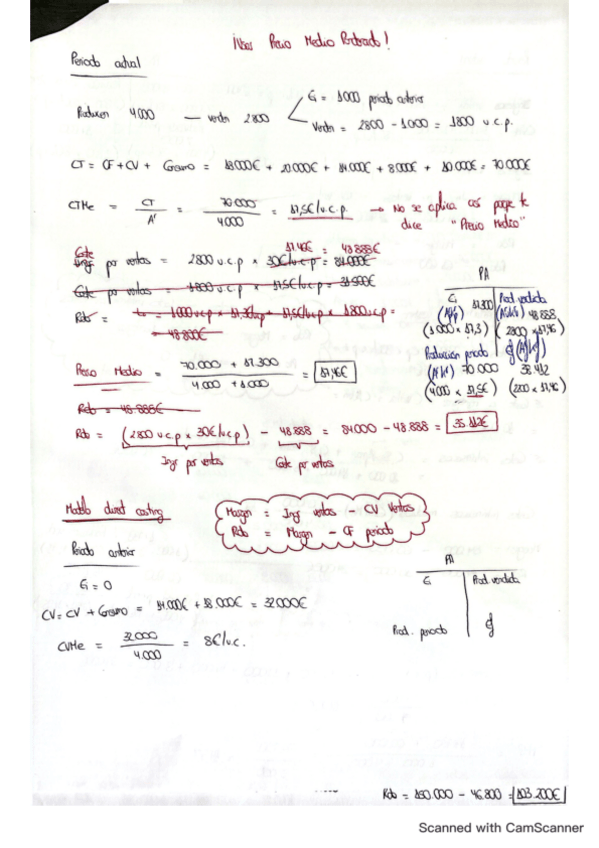 ¡Usar Precio Medio Ponderado!
Periodo actual
Ei = 1000 periodo anterior
Producen 4.000 — venden 2800
Venden = 2800 - 1000 = 1800 u.c.p.
CT = CF + CV + Consumo = 18.000€ + 20.000€ + 14.000€ + 8.000€ + 10.000€ = 70.000€
CTMe = CT / A' = 70.000 / 4.000 = 17,5€/u.c.p. → No se aplica así porque te
dice "Precio Medio"
17,46€ = 48.888€
Coste por ventas = 2800 u.c.p × 30€/u.c.p = 84.000€
Coste por ventas = 1800 u.c.p × 17,5€/u.c.p =
Rdo = 1.000 u.c.p × 17,3€/u.c.p + 17,5€/u.c.p × 1.800 u.c.p =
= 48.800€
PA
Ei 17.300 Prod. vendida
48.888
(1.000 × 17,3) (2800 × 17,46)
Producción periodo Ef
70.000 38.412
(4.000 × 17,5€) (2200 × 17,46)
Precio Medio = 70.000 + 17.300 / 4.000 + 1.000 = 17,46€
Rdo = 48.888€
Rdo = (2800 u.c.p × 30€/u.c.p) - 48.888 = 84.000 - 48.888 = 35.112€
Ingr por ventas Coste por ventas
Modelo direct costing
Margen = Ingr ventas - CV Ventas
Rdo = Margen - CF periodo
Periodo anterior
PA
Ei = 0
Ei Prod vendida
CV = CV + Consumo = 14.000€ + 18.000€ = 32.000€
Prod. periodo Ef
CVMe = 32.000 / 4.000 = 8€/u.c.
Rdo = 150.000 - 46.800 = 103.200€
Scanned with CamScanner